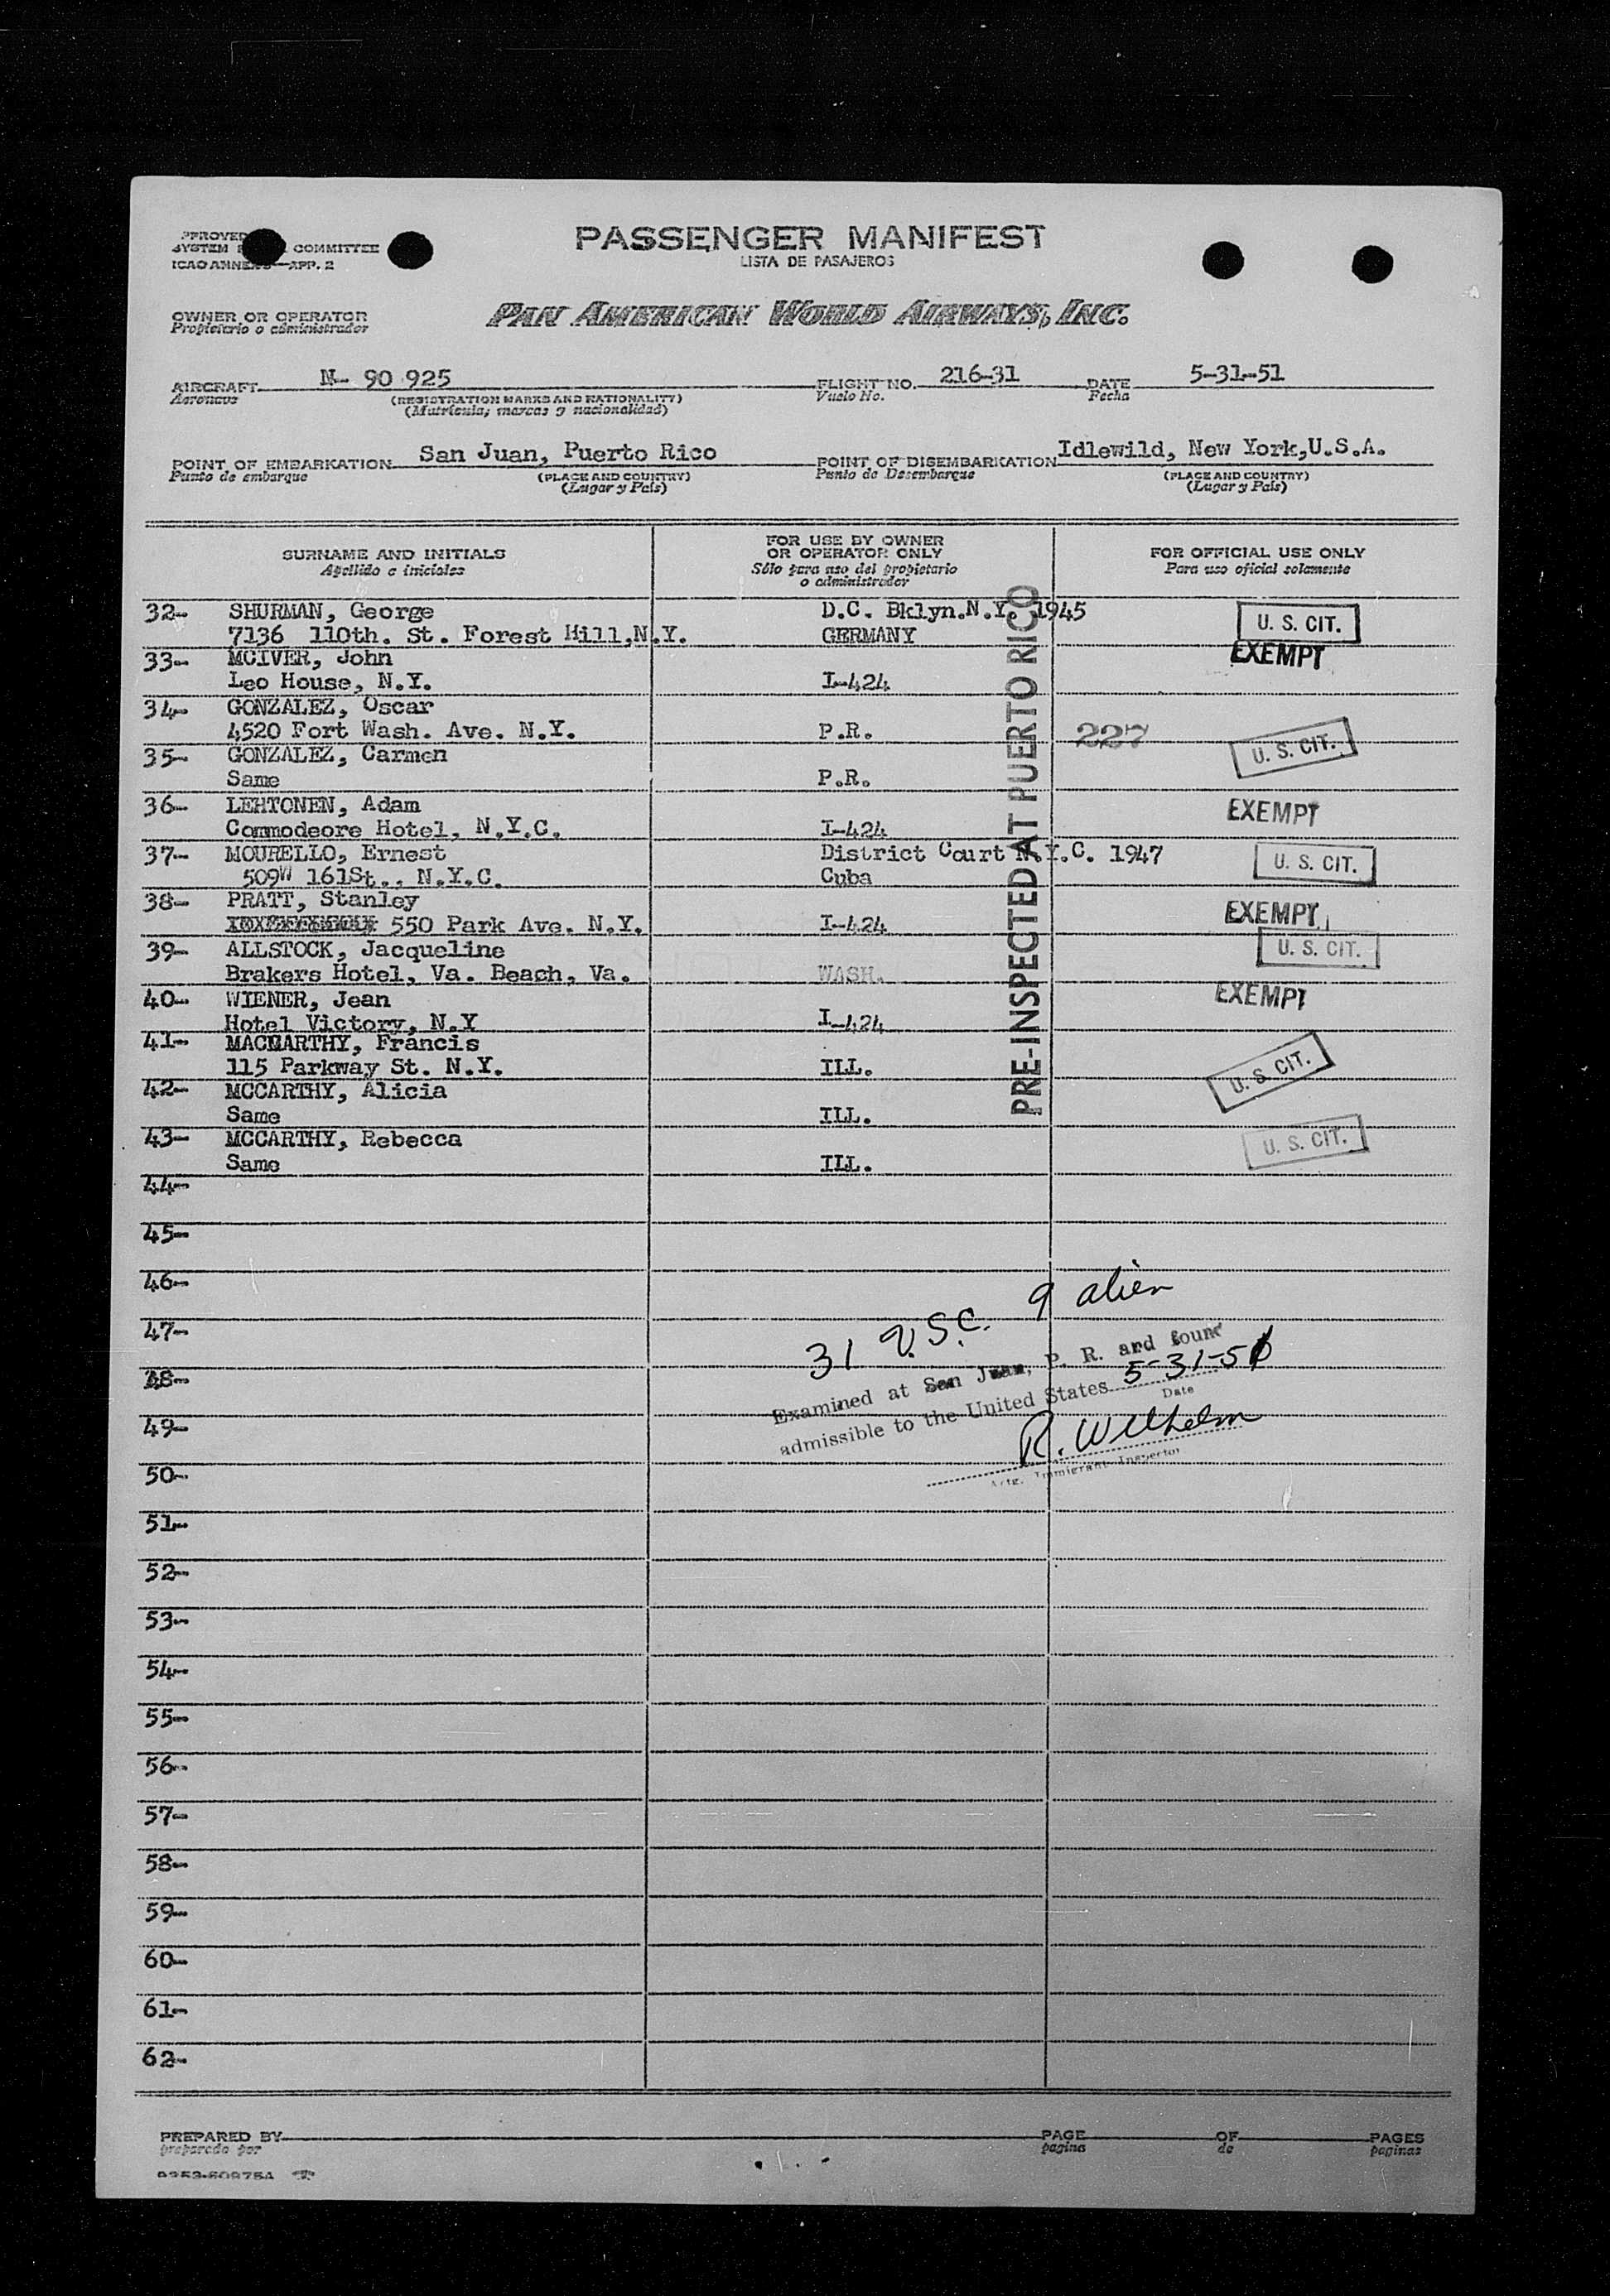 APPROVED
SYSTEM COMMITTEE
ICAO ANNEX 9—APP. 2
PASSENGER MANIFEST
LISTA DE PASAJEROS
OWNER OR OPERATOR
Propietario o administrador
PAN AMERICAN WORLD AIRWAYS, INC.
AIRCRAFT N- 90 925 FLIGHT NO. 216-31 DATE 5-31-51
Aeronave (REGISTRATION MARKS AND NATIONALITY) Vuelo No. Fecha
(Matrícula, marcas y nacionalidad)
POINT OF EMBARKATION San Juan, Puerto Rico POINT OF DISEMBARKATION Idlewild, New York,U.S.A.
Punto de embarque (PLACE AND COUNTRY) Punto de Desembarque (PLACE AND COUNTRY)
(Lugar y País) (Lugar y País)
SURNAME AND INITIALS FOR USE BY OWNER OR OPERATOR ONLY FOR OFFICIAL USE ONLY
Apellido e iniciales Sólo para uso del propietario o administrador Para uso oficial solamente
32- SHURMAN, George D.C. Bklyn.N.Y. 1945 U. S. CIT.
7136 110th. St. Forest Hill,N.Y. GERMANY
33- MCIVER, John EXEMPT
Leo House, N.Y. I-424
34- GONZALEZ, Oscar
4520 Fort Wash. Ave. N.Y. P.R. 227 U. S. CIT.
35- GONZALEZ, Carmen
Same P.R.
36- LEHTONEN, Adam EXEMPT
Commodeore Hotel, N.Y.C. I-424
37- MOURELLO, Ernest District Court N.Y.C. 1947 U. S. CIT.
509W 161St., N.Y.C. Cuba
38- PRATT, Stanley EXEMPT
550 Park Ave. N.Y. I-424
39- ALLSTOCK, Jacqueline U. S. CIT.
Brakers Hotel, Va. Beach, Va. WASH.
40- WIENER, Jean EXEMPT
Hotel Victory, N.Y I-424
41- MACCARTHY, Francis
115 Parkway St. N.Y. ILL. U. S. CIT.
42- MCCARTHY, Alicia
Same ILL.
43- MCCARTHY, Rebecca U. S. CIT.
Same ILL.
PRE-INSPECTED AT PUERTO RICO
44-
45-
46-
47-
48-
49-
50-
51-
52-
53-
54-
55-
56-
57-
58-
59-
60-
61-
62-
31 U.S.C. 9 alien
Examined at San Juan, P. R. and found
admissible to the United States 5-31-51
Date
R. Wilhelm
Actg. Immigrant Inspector
PREPARED BY PAGE OF PAGES
preparado por página de páginas